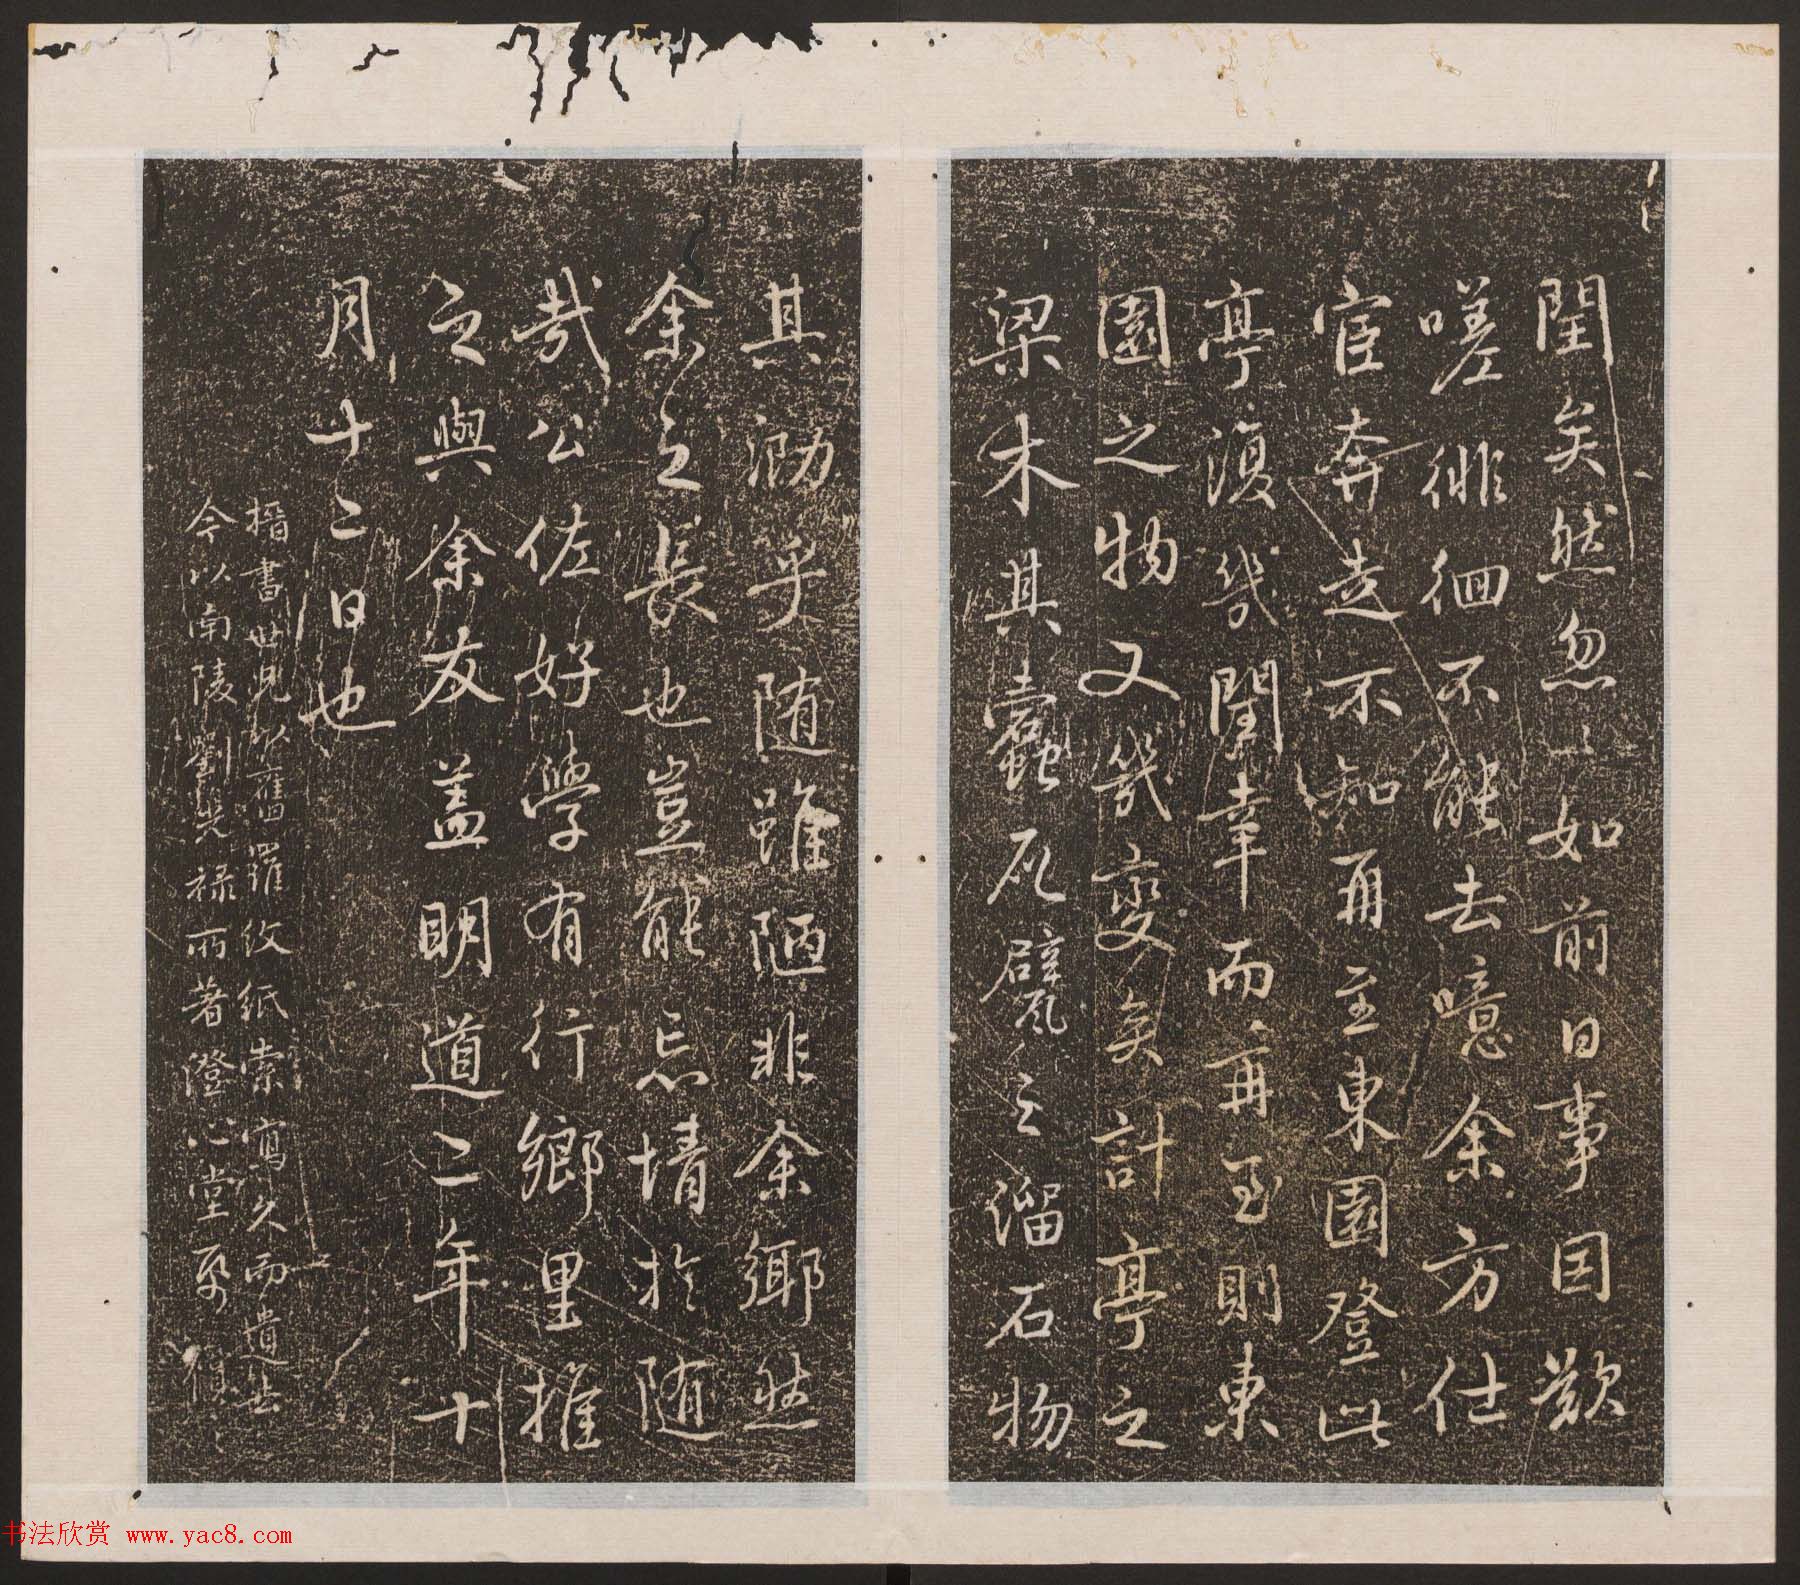 閏矣然忽〻如前日事因歎
嗟徘徊不能去噫余方仕
宦奔走不知再至東園登此
亭復幾閏幸而再至則東
園之物又幾變矣計亭之
梁木其蠹瓦甓之溜石物
其泐乎隨雖陋非余鄉然
余之長也豈能忘情於隨
哉公佐好學有行鄉里推
之與余友蓋明道二年十
月十二日也
書世兄以舊羅紋紙索寫久而遺去
今以南陵劉光祿所著澄心堂償之
书法欣赏 www.yac8.com